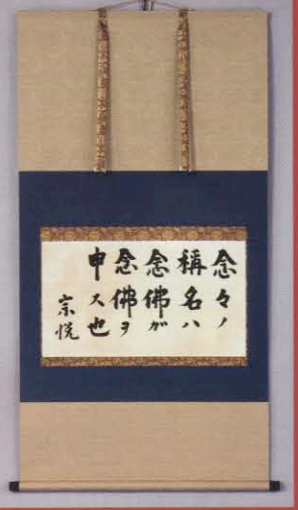 念々ノ
稱名ハ
念佛ガ
念佛ヲ
申ス也
宗悦